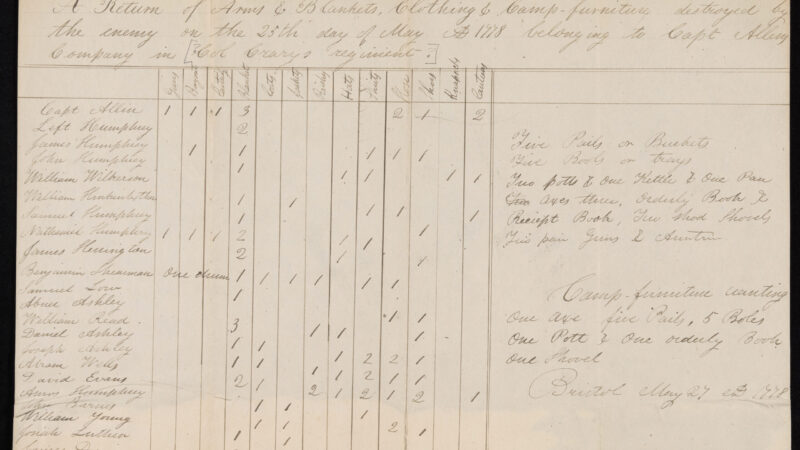 A Return of Arms & Blankets, Clothing & Camp-furniture destroyed by
the enemy on the 25th day of May AD 1778 belonging to Capt Allin
Company in [Col Crary's regiment.]
Blankets Coats Hats Shirts Shoes Knapsack Canteens
Capt Allin 1 1 1 3 2 1 2
Left Humphrey 2
James Humphrey 1 1 1 1 1
John Humphrey 1
William Wilkerson 1 1 1 1
William
Samuel Humphrey 1 1 1 1
Nathaniel Humphrey 1 1 1 2 1 1
James Herrington 2 1 1
Benjamin Shearman One 1 1 1 1 1 1
Samuel Low 1
Abner Ashley
William Read 1 1
Daniel Ashley 3 1 1 1
Joseph Ashley 1 1
Abram Wells 1 1 1 2 2 1
David Evans 2 1 1 2 1 1
Amos Hoomphrey 2 1 2 1 2 1
William Young 1 1 1
Josiah Luther 1 1 2 1
Five Pails or Buckets
Five Bools or trays
Two potts & One Kettle & One Pan
axes three, Orderly Book &
Reciept Book, Two Shod Shovels
pair Guns &
Camp-furniture wanting
One axe five Pails, 5 Boles
One Pott & One orderly Book
One Shovel
Bristol May 27 AD 1778